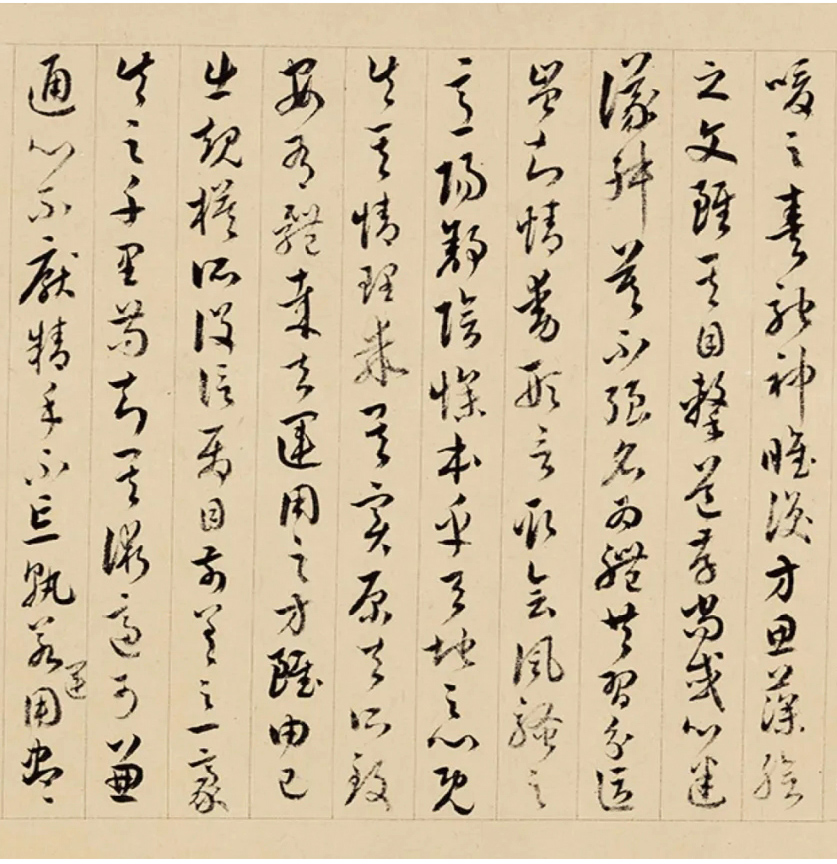 喛之奏馳神睢渙方思藻繪
之文雖其目擊道存尚或心迷
議舛莫不強名為體共習分區
豈知情動形言取會風騷之
意陽舒陰慘本乎天地之心既
失其情理乖其實原夫所致
安有體哉夫運用之方雖由己
出規模所設信屬目前差之一豪
失之千里苟知其術適可兼
通心不厭精手不忘熟若運用盡